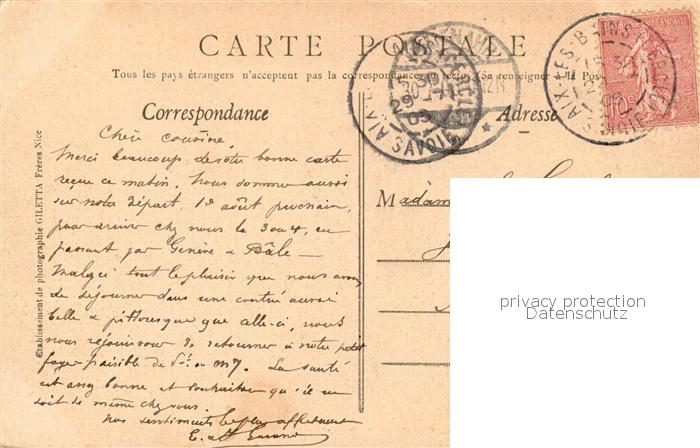 CARTE POSTALE
Tous les pays étrangers n'acceptent pas la correspondance au recto (Se renseigner à la Pos
Correspondance
Adresse
Chère cousine,
Merci beaucoup de votre bonne carte
reçue ce matin. Nous sommes aussi
sur notre départ, 1er août prochain,
pour arriver chez nous le 3 ou 4, en
passant par Genève & Bâle —
Malgré tout le plaisir que nous avons
de séjourner dans une contrée aussi
belle & pittoresque que celle-ci, nous
nous réjouissons de retourner à notre petit
foyer paisible de
La santé
est assez bonne et souhaitons qu'il en
soit de même chez vous.
Nos sentiments les plus affectueux
E.
Madame
Etablissement de photographie GILETTA Frères Nice
AIX-LES-BAINS
SAVOIE
AIX
SAVOIE
10
privacy protection
Datenschutz